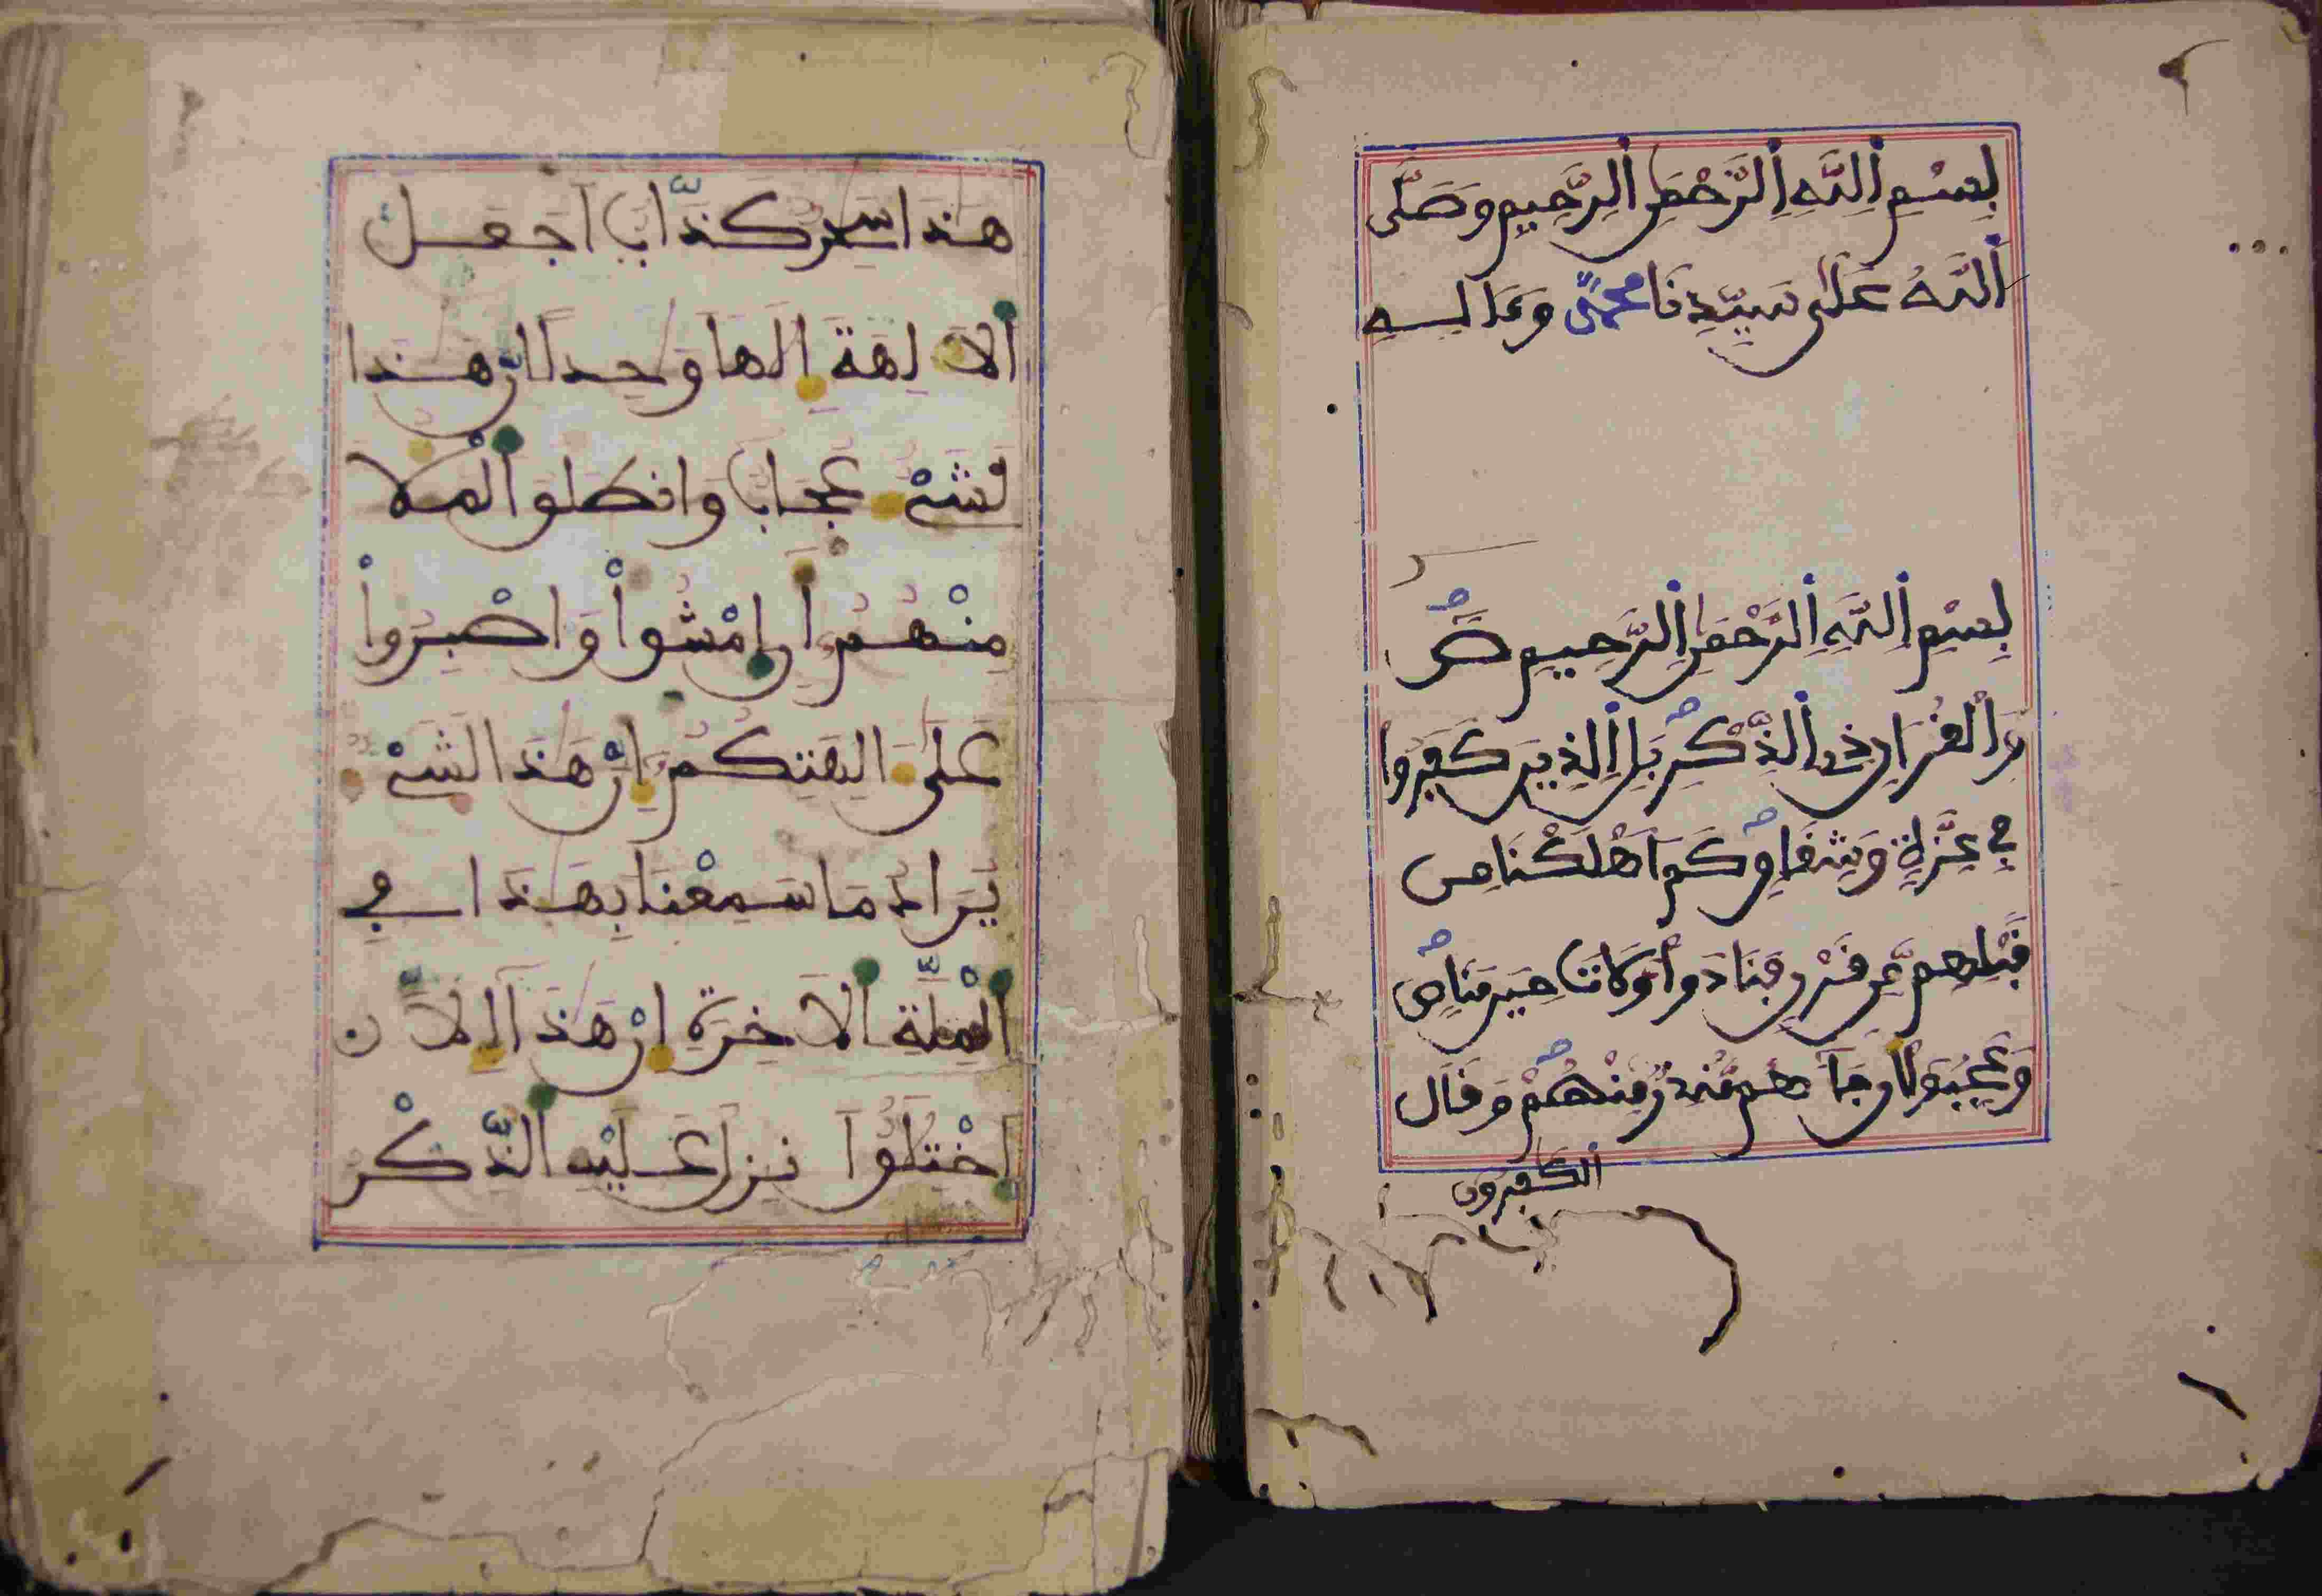 بِسْمِ اِ۬للَّهِ اِ۬لرَّحْمَٰنِ اِ۬لرَّحِيمِ وَصَلَّى
اَ۬للَّهُ عَلَىٰ سَيِّدِنَا مُحَمَّدٍ وَعَلَىٰ ءَالِهِ
بِسْمِ اِ۬للَّهِ اِ۬لرَّحْمَٰنِ اِ۬لرَّحِيمِ صَ
وَالْقُرْءَانِ ذِى اِ۬لذِّكْرِ بَلِ اِ۬لذِينَ كَفَرُوا
فِے عِزَّةٍ وَشِقَاقٍ كَمَ اَهْلَكْنَا مِن
قَبْلِهِم مِّن قَرْنٍ فَنَادَوا وَّلَاتَ حِينَ مَنَاصٍ
وَعَجِبُوٓا أَن جَآءَهُم مُّنذِرٌ مِّنْهُمْ وَقَالَ
اَ۬لْكَٰفِرُونَ
هَٰذَا سَٰحِرٌ كَذَّابٌ اَجَعَلَ
اَ۬لَالِهَةَ إِلَٰهاً وَٰحِداً اِنَّ هَٰذَا
لَشَےْءٌ عُجَابٌ وَانطَلَقَ اَ۬لْمَلَأُ
مِنْهُمُ أَنِ اِ۪مْشُواْ وَاصْبِرُواْ
عَلَىٰٓ ءَالِهَتِكُمُ إِنَّ هَٰذَا لَشَےْءٌ
يُرَادُ مَا سَمِعْنَا بِهَٰذَا فِے
اِ۬لْمِلَّةِ اِ۬لَاخِرَةِ إِنْ هَٰذَآ إِلَّا
اَ۪خْتِلَٰقٌ اَ۟نزِلَ عَلَيْهِ اِ۬لذِّكْرُ